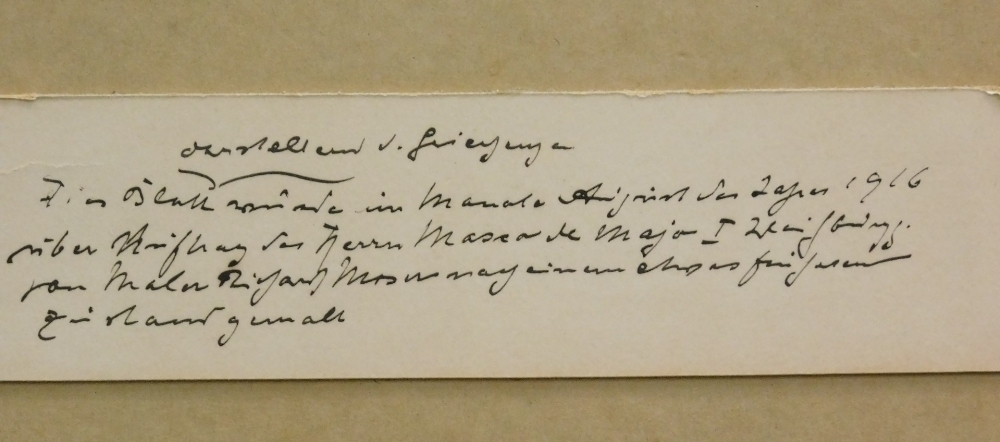 darstellend d. Griechenga
Dies Blatt wurde im Monate August des Jahres 1916
über Auftrag des Herrn Marco de Majo I
von Maler Richard Moser nach einem etwas früheren
Zustand gemalt